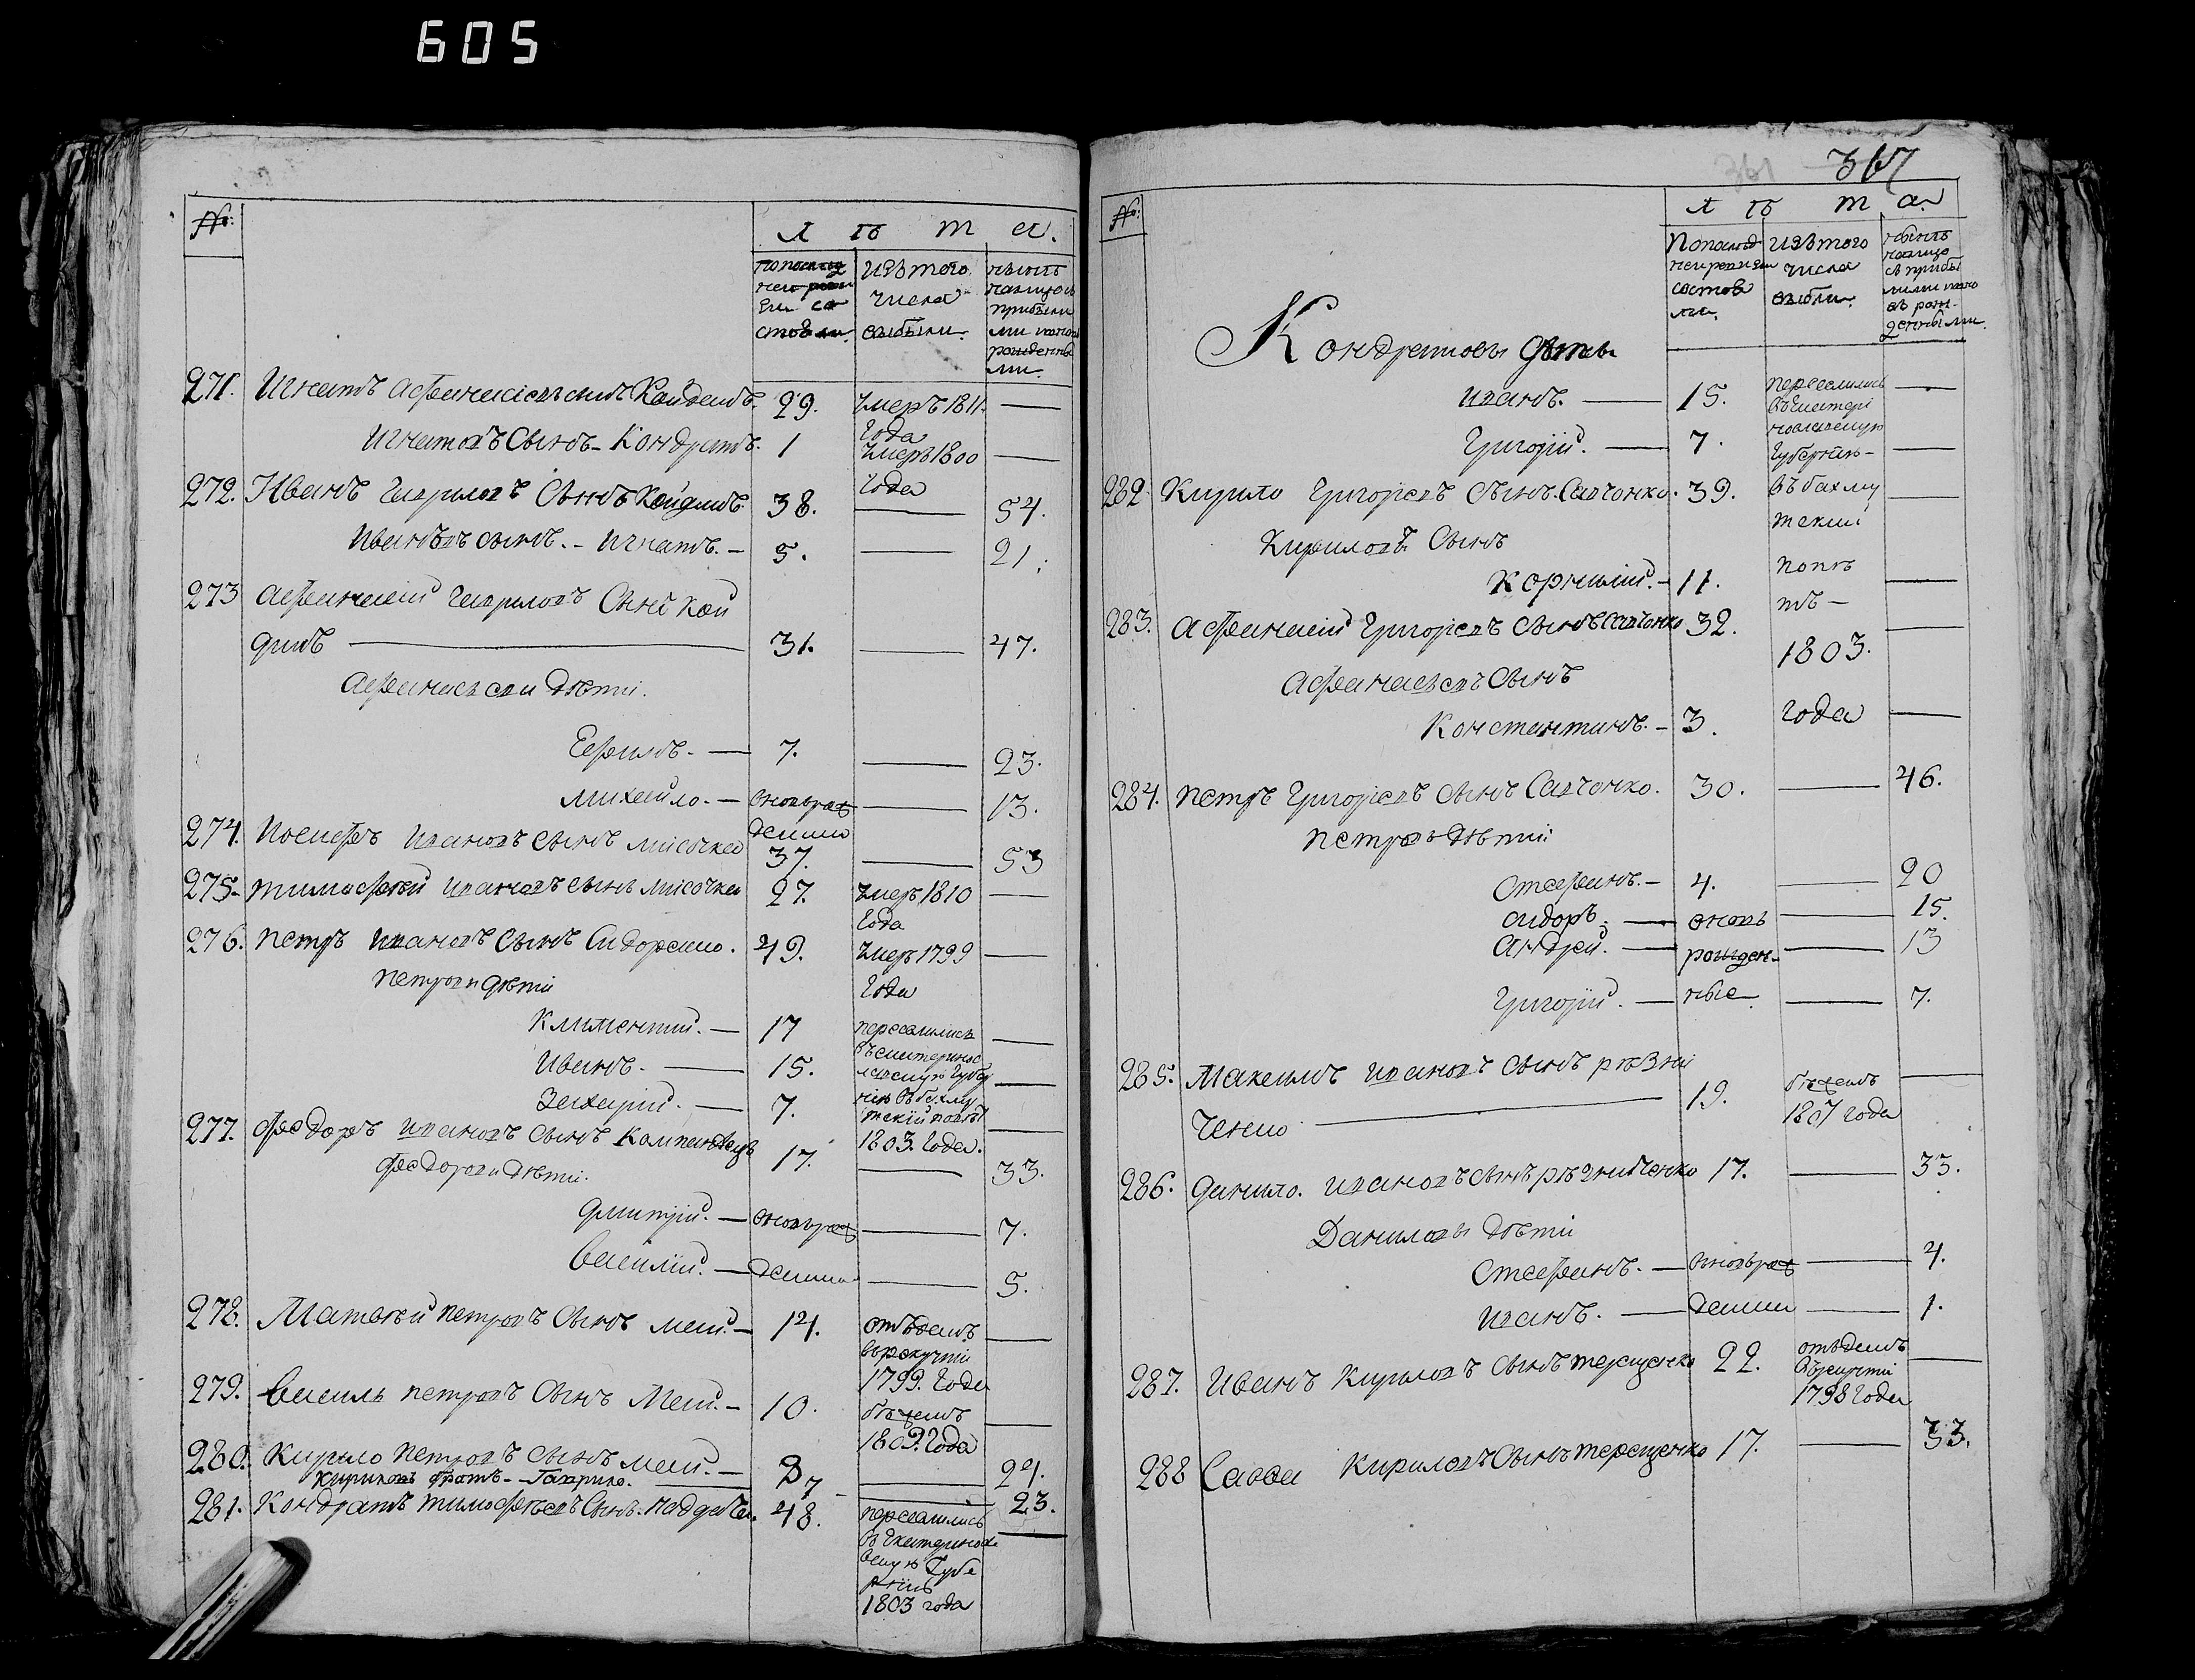 605
№:
Л ѣ т а.
по послед ней реви зіи со стояли.
изъ того числа выбыли.
нынѣ налицо съ прибыли ми и ново рожденны ми.
271. Игнатъ Афанасіевъ сынъ Кайдашъ. 29. умеръ 1811. года —
Игнатовъ Сынъ - Кондратъ. 1 умеръ 1800 года —
272. Иванъ Гавриловъ Сынъ Кайдашъ. 38. — 54.
Ивановъ сынъ. - Игнатъ. - 5. — 21.
273 Афанасий Гавриловъ Сынъ Кай
дашъ — 31. — 47.
Афанасьеви дѣти.
Ефимъ. — 7. — 23.
Михайло. — вновьрож — 13.
274. Иосифъ Ивановъ сынъ Мисочка денно 37. — 53
275. Тимофѣй Ивановъ сынъ Мисочка 27. умеръ 1810 года —
276. Петръ Ивановъ Сынъ Сидоренко. 49. умеръ 1799 года —
Петрови дѣти
Климентий. — 17 переселились —
Иванъ. — 15. въ екатеринос лавскую губер —
Захарій. — 7. нію въ бахму тскій повѣт 1803. года. —
277. Феодоръ Ивановъ сынъ Компанѣецъ 17. — 33.
Феодорови дѣти.
Дмитрій. — вновьрож — 7.
Василій. — денни — 5.
278. Матвѣй Петровъ Сынъ Меш. — 14. отданъ врекрути 1799. года —
279. Василь Петровъ Сынъ Меш. — 10. бѣжалъ 1802. года —
280. Кирило Петровъ Сынъ Меш. — 8 — 24.
Кириловъ братъ - Гаврило. — 7 — 23.
281. Кондратъ Тимофѣевъ Сынъ. 48. переселились въ Екатеринослав вскую Губе рнію 1803 года —
361 367
№:
Л ѣ т а.
По послед ней ревизіи состоя ли.
изъ того числа выбыли.
нынѣ налицо съ прибы лыми и ново въ рож денными.
Кондратовы дѣти
Иванъ. — 15. переселились въ екатери —
Григорій. — 7. нославскую Губернію —
282. Кирило Григорьевъ Сынъ Савченко. 39. въ бахму —
Кириловъ Сынъ тскій
Корнилій. — 11. повѣ —
283. Афанасий Григорьевъ сынъ Савченко 32. тъ — —
Афанасьевъ Сынъ 1803.
Константинъ. — 3. года —
284. Петръ Григорьевъ сынъ Савченко. 30. — 46.
Петровъ дѣти
Стефанъ. — 4. — 20
Сидоръ. — вновь — 15.
Андрей. — рожден- — 13
Григорій. — ные — 7.
285. Максимъ Ивановъ сынъ рѣзни
ченко — 19. бѣжалъ 1807 года —
286. Данило. Ивановъ сынъ рѣзниченко 17. — 33.
Даниловы дѣти
Стефанъ. — вновьрож — 4.
Иванъ. — денни — 1.
287. Иванъ Кириловъ сынъ терещенко 22. отданъ врекрути 1798 года —
288 Савва Кириловъ Сынъ терещенко 17. — 33.